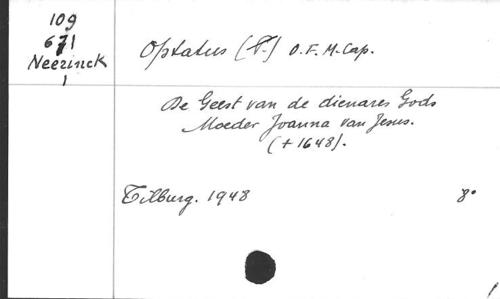 109
671
Neerinck
1
Optatus (P.) O.F.M. Cap.
De Geest van de dienares Gods
Moeder Joanna van Jesus.
(+ 1648).
Tilburg. 1948 8°